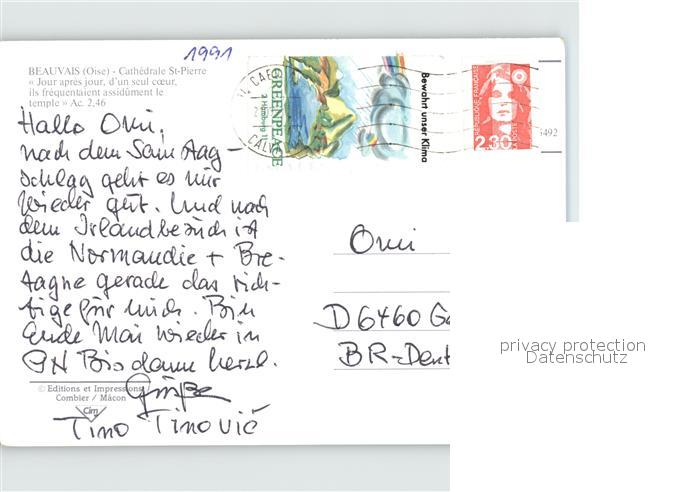 1991
BEAUVAIS (Oise) - Cathédrale St-Pierre
« Jour après jour, d'un seul cœur,
ils fréquentaient assidûment le
temple » Ac. 2,46
Hallo Omi,
nach dem Samstag-
schlag geht es mir
wieder gut. Und nach
dem Irlandbesuch ist
die Normandie + Bre-
tagne gerade das rich-
tige für mich. Bin
Ende Mai wieder in
GN Bis dann herzl.
Grüße
Tino Tinovič
© Editions et Impressions
Combier / Mâcon
Cim
CAEN
CALV
GREENPEACE
2 Hamburg 11
Bewahrt unser Klima
RÉPUBLIQUE FRANÇAISE
2,30
LA POSTE
6492
Omi
D 6460 Ge
BR-Deut
privacy protection
Datenschutz